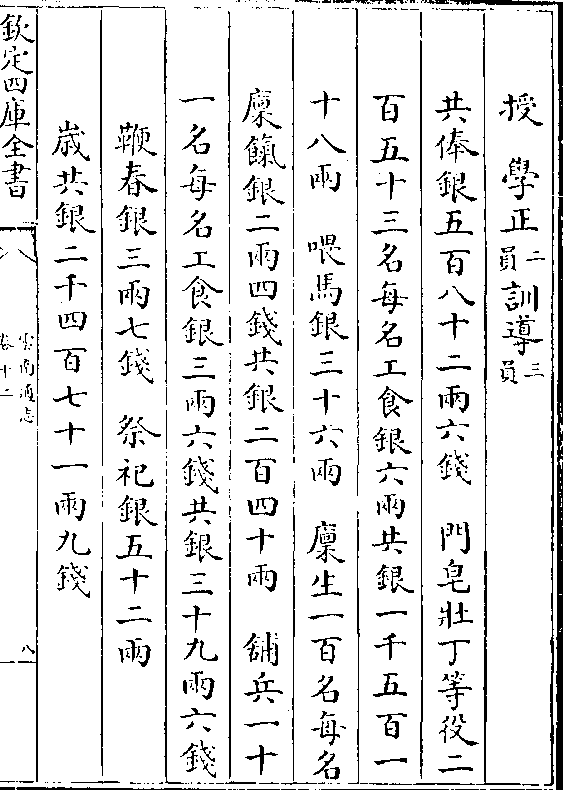 授　學正二員訓導三員
共俸銀五百八十二兩六錢　門皂壯丁等役二
百五十三名每名工食銀六兩共銀一千五百一
十八兩　喂馬銀三十六兩　廩生一百名每名
廩餼銀二兩四錢共銀二百四十兩　鋪兵一十
一名每名工食銀三兩六錢共銀三十九兩六錢
鞭春銀三兩七錢　祭祀銀五十二兩
歲共銀二千四百七十一兩九錢
欽定四庫全書
雲南通志
卷十二
八